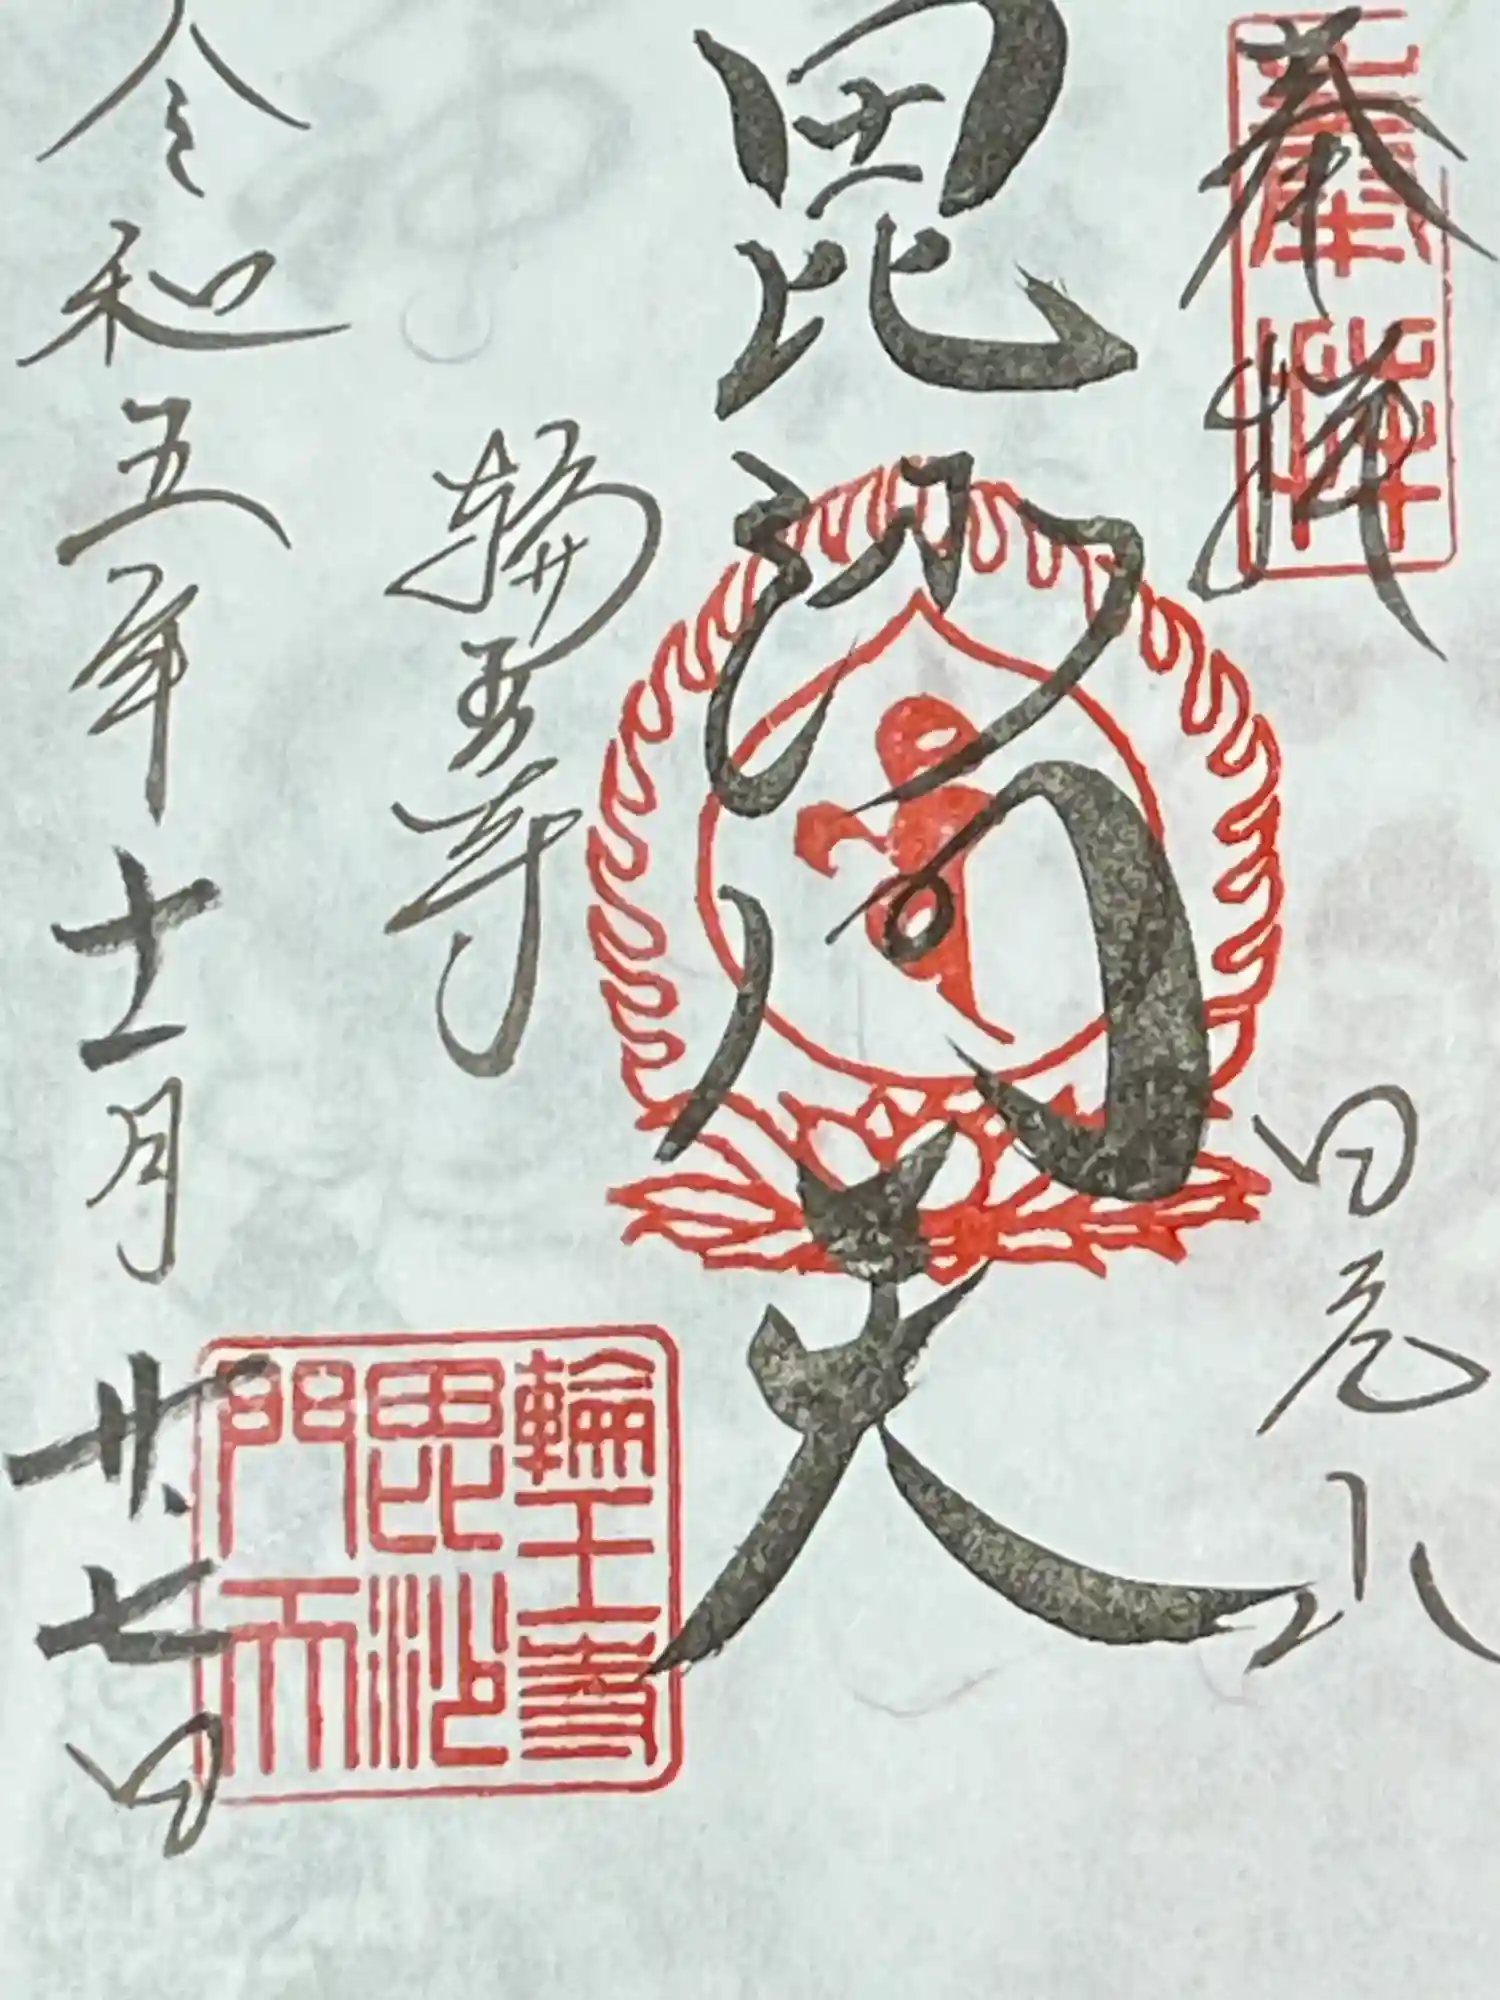 奉拝
日光山
毘沙門天
輪王寺
令和五年十一月廿七日
奉拝
輪王寺
毘沙
門天